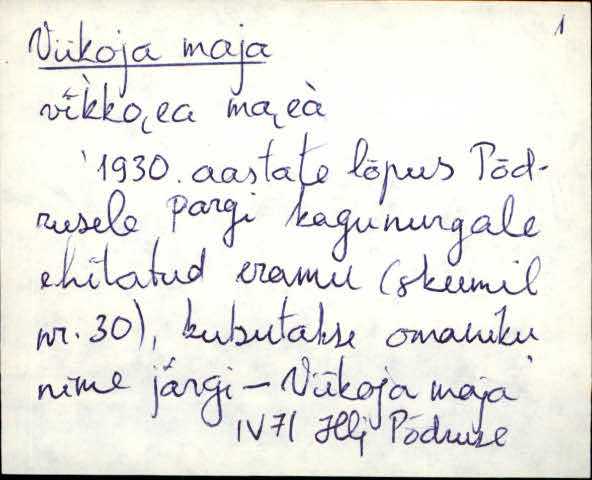 1
Viikoja maja
vīkko̜ea ma̜eà
1930. aastate lõpus Põd-
rusele pargi kagunurgale
ehitatud eramu (skeemil
nr. 30), kutsutakse omaniku
nime järgi – Viikoja maja
IV 71 Hlj Põdruse